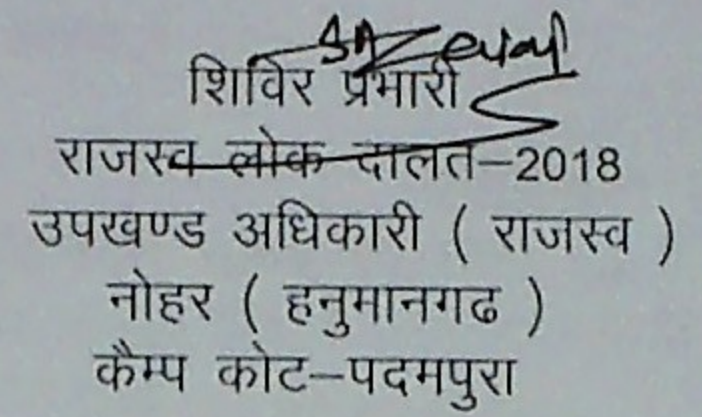 शिविर प्रभारी
राजस्व लोक दालत–2018
उपखण्ड अधिकारी ( राजस्व )
नोहर ( हनुमानगढ )
कैम्प कोट–पदमपुरा